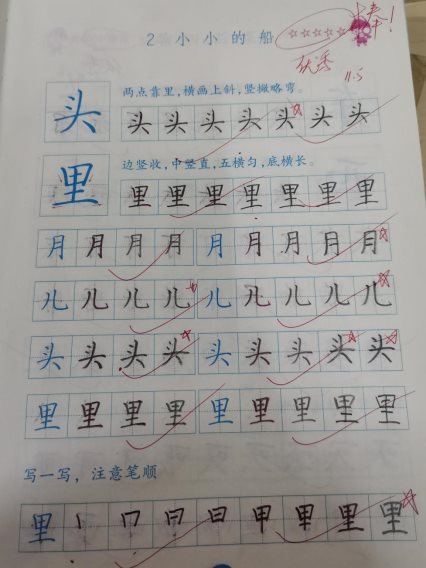 2 小小的船 ☆☆☆☆☆ 棒!
优秀
11.5
头 两点靠里,横画上斜,竖撇略弯。
头头头头头头头
里 边竖收,中竖直,五横匀,底横长。
里里里里里里里
月月月月月月月月月
儿儿儿儿儿儿儿儿儿
头头头头头头头头头
里里里里里里里里里
写一写,注意笔顺
里丨冂日日甲里里里